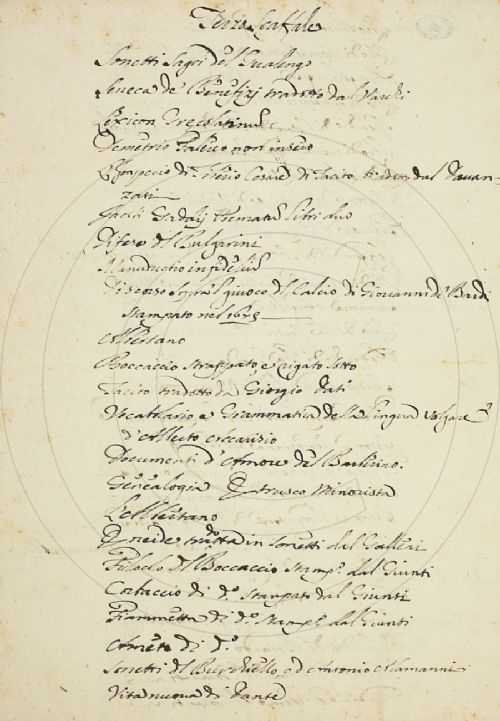 Terzo Scaffale
Sonetti Sagri del
Seneca de Benefizj tradotto dal Varchi
Lexicon Grecolatinus
Demetrio Falereo non intero
L'Imperio di Tiberio Cesare di Tacito, trad: dal Davan-
zati
Libri duo
Difese del Bulgarini
Manuductio in
Discorso sopra l giuoco del Calcio di Giovanni de' Bardi
stampato nel
Boccaccio strappato, e rigato sotto
Tacito tradotto da Giorgio Dati
Vocabulario, e Grammatica della Lingua Volgare
d'Alberto
Documenti d'Amore del Barberino.
Genealogia Etrusco
Eneide in sonetti dal
Filocolo del Boccaccio Stamp.º dal Giunti
Corbaccio di d.º Stampato dal Giunti
Fiammetta di d.º Stamp.º dal Giunti
Ameto di d.º
Sonetti del Burchiello, ed Antonio Alamanni
Vita nuova di Dante